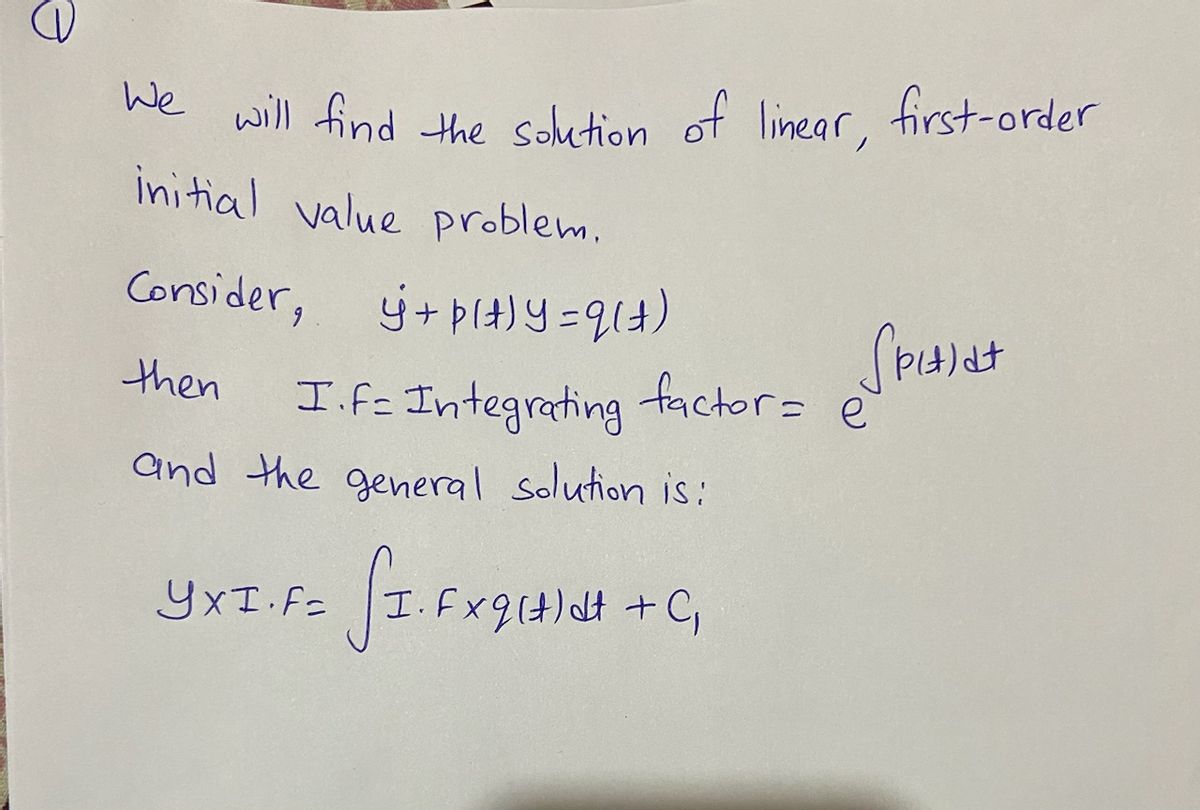 ①
We will find the solution of linear, first-order
initial value problem.
Consider, ẏ + p(t) y = q(t)
then I.F = Integrating factor = e^∫p(t)dt
and the general solution is:
y × I.F = ∫ I.F × q(t) dt + C₁